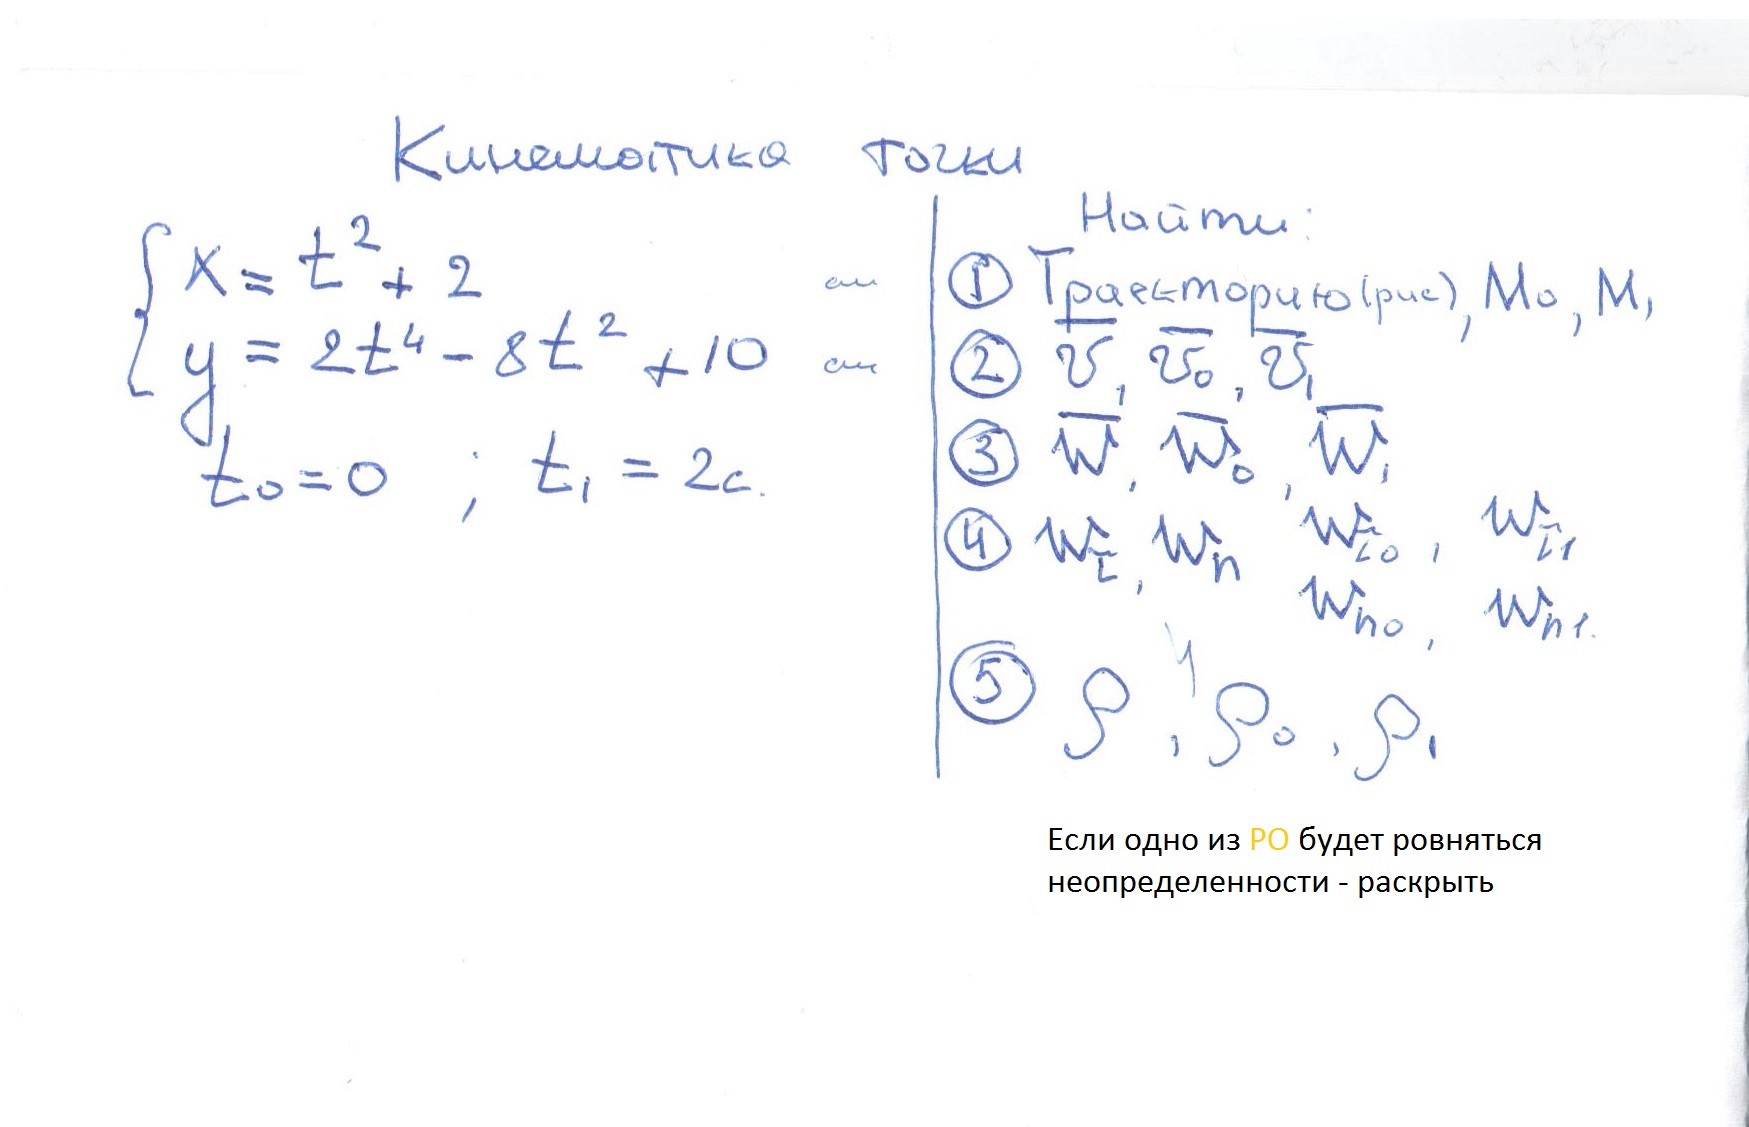 Кинематика точки
x = t² + 2 см
y = 2t⁴ - 8t² + 10 см
t₀ = 0 ; t₁ = 2с.
Найти:
① Траекторию(рис), M₀, M₁
② v̅, v̅₀, v̅₁
③ w̅, w̅₀, w̅₁
④ wτ, wn wτ₀, wτ₁
wn₀, wn₁.
⑤ ρ, ρ₀, ρ₁
Если одно из РО будет ровняться
неопределенности - раскрыть